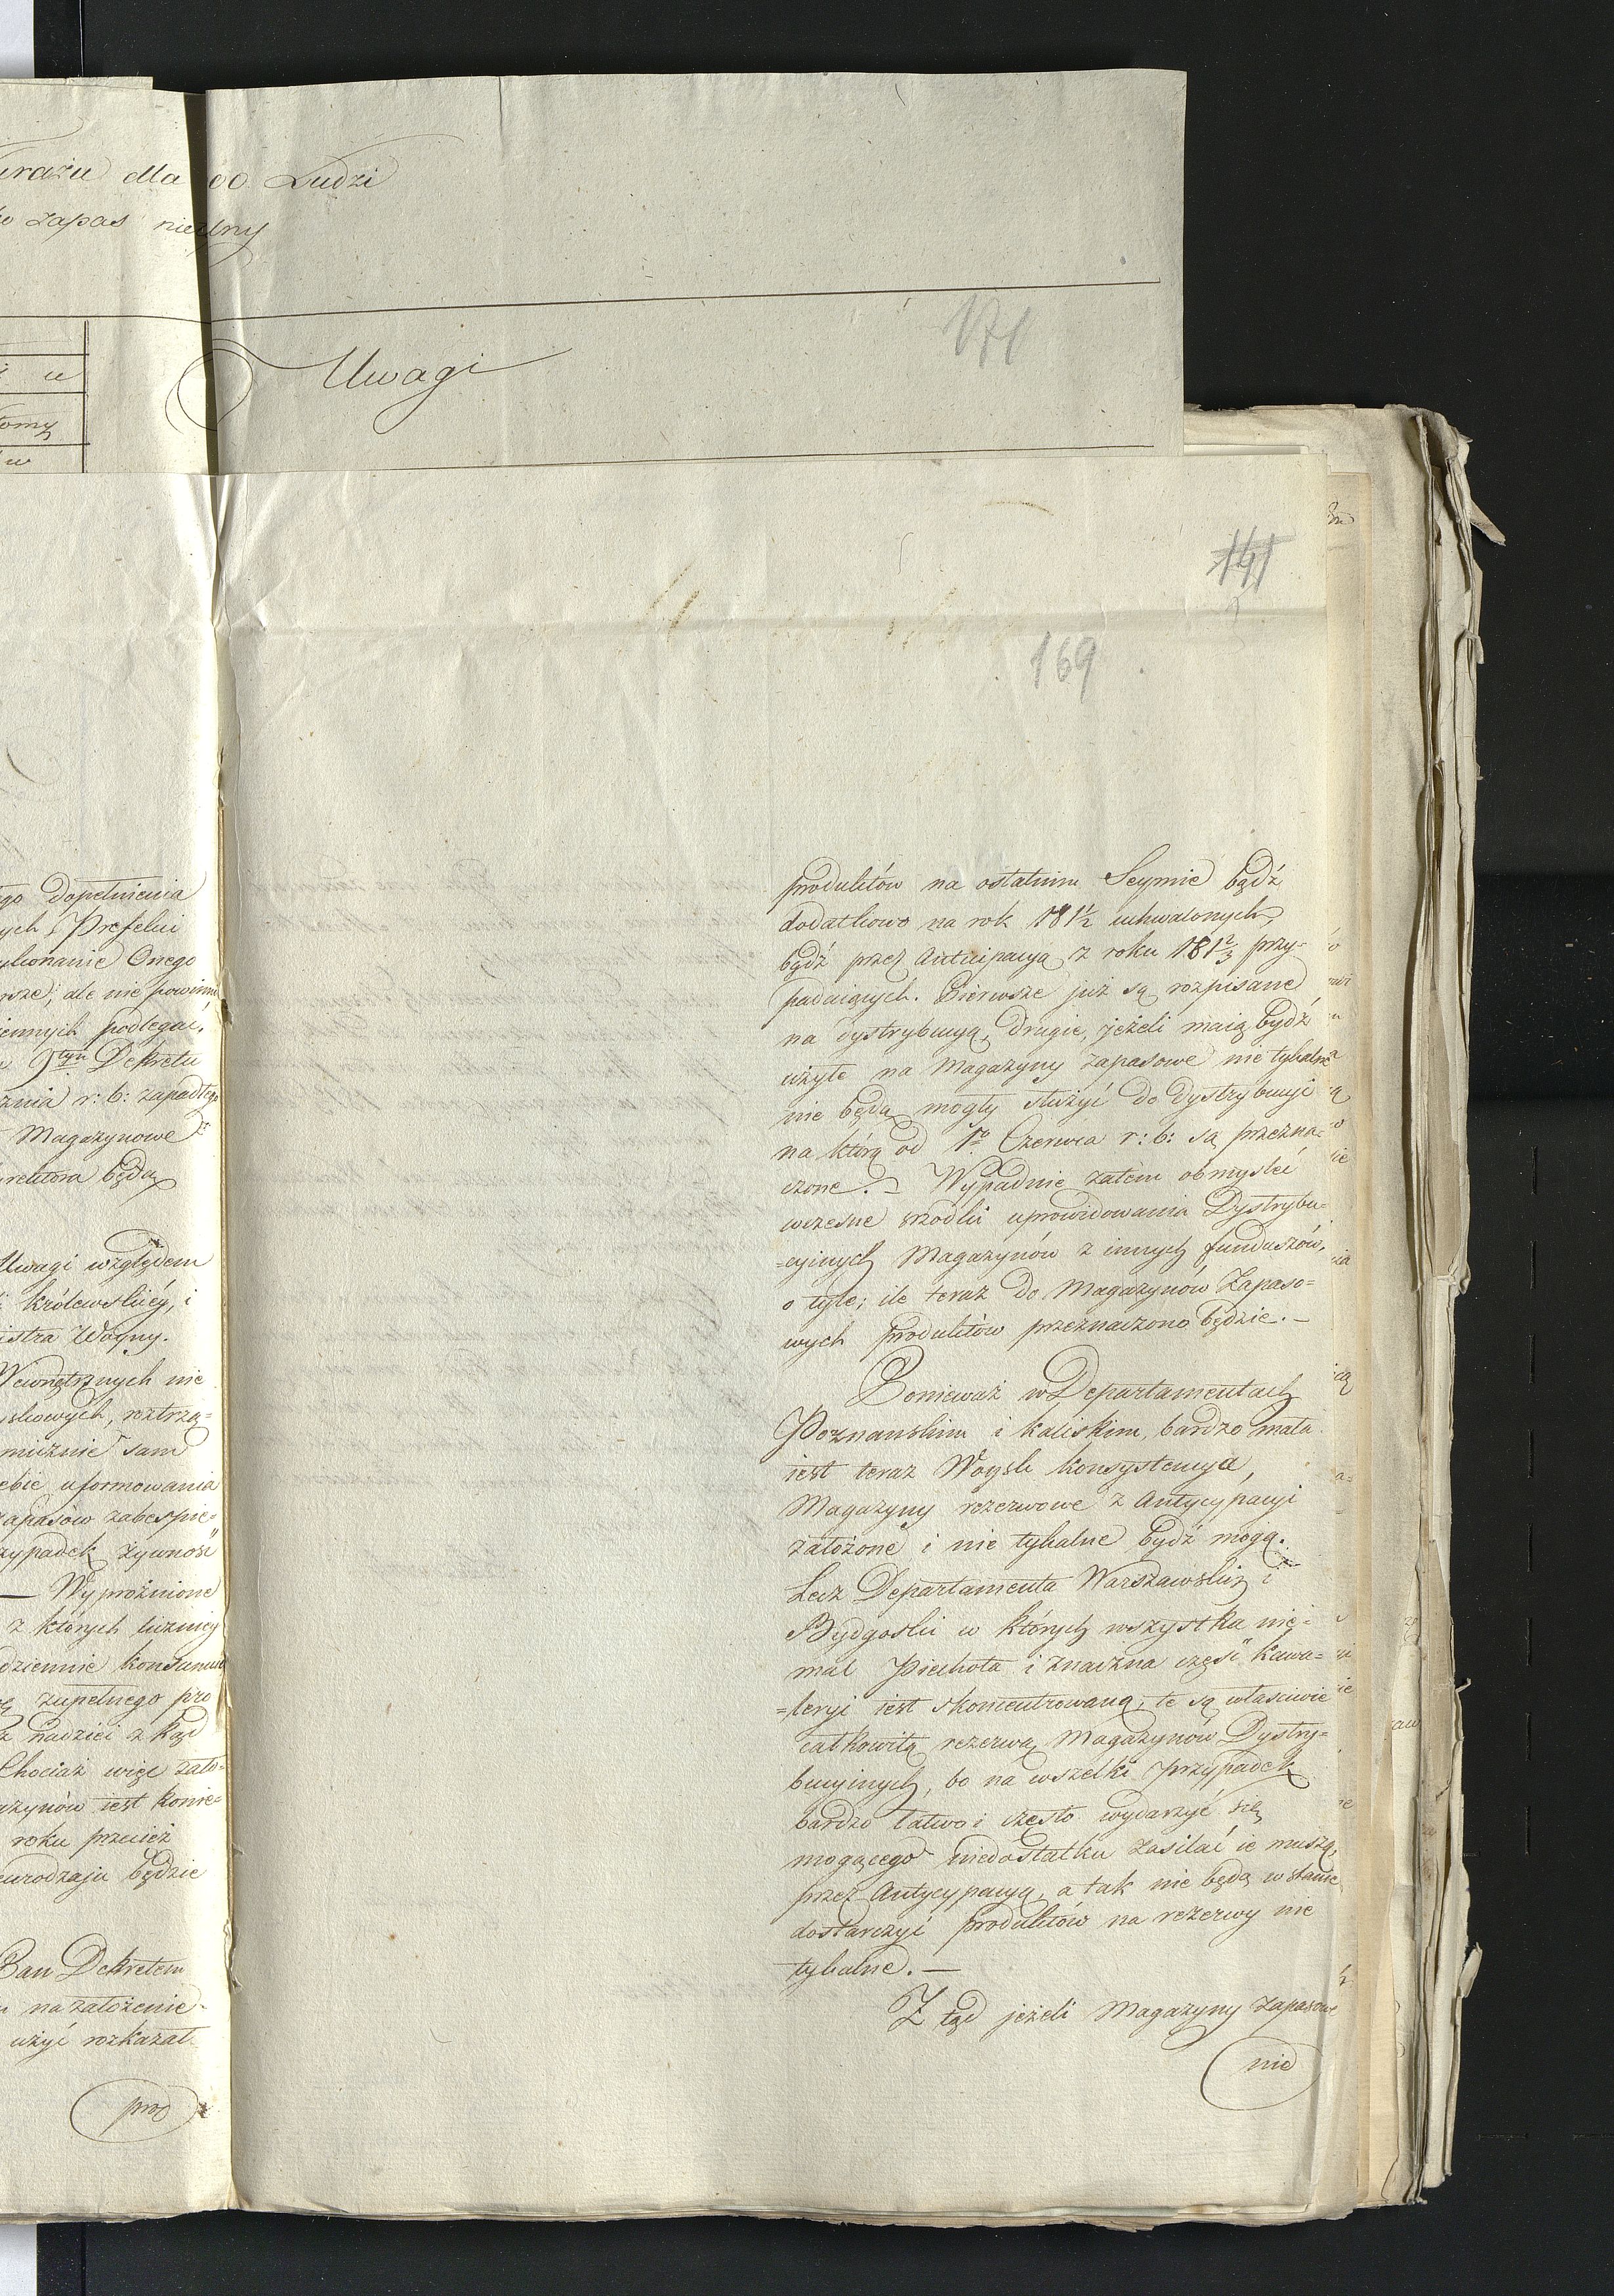 urażu dla 00 Ludzi
o zapas nietlny
Uwagi
171
u
tomy
w
141
169
go dopełnienia
ych Prefekci
ykonanie Onego
rsze; ale nie powinni
iennych podlegać.
9tym Dekretu
znia r: b: zapadłego
Magazynowe
rektora będą
Uwagi względem
królewskiéy, i
istra Woyny.
Wewnętrznych nie
skowych, roztrzą=
micznie sam
ebie uformowania
zapasów zabespie=
zypadek żywność
— Wypróżnione
z których liczniey
dziennie konsumu
zupełnego pro
ż nadziei z kąd
Chociaż więc zało=
azynów iest konie=
roku przecież
eurodzaju będzie
Pan Dekretem
na założenie
użyć rozkazał
prod
produktów na ostatnim Seymie bądź
dodatkowo na rok 181½ uchwalonych,
bądź przez Anticipacyą z roku 181⅔ przy=
padaiących. Pierwsze już są rozpisane
na dystrybucyą, drugie, jeżeli maią bydź
użyte na Magazyny zapasowe nie tykalne
nie będą mogły służyć do Dystrybucyi
na którą od 1o Czerwca r: b: są przezna=
czone. — Wypadnie zatem obmyslić
wczesne srzodki uprowidowania Dystrybu=
=cyinych Magazynów z innych funduszów,
o tyle; ile teraz do Magazynów Zapaso=
wych produktów przeznaczono będzie. —
Ponieważ w Departamentach
Poznanskim i Kaliskim, bardzo mała
iest teraz Woysk konsystencya,
Magazyny rezerwowe z Antycypacyi
założone i nie tykalne bydź mogą.
Lecz Departamenta Warszawski i
Bydgoski w których wszystka nie=
mal Piechota i znaczna część Kawa=
=leryi iest skoncentrowaną, te są właściwie
całkowitą rezerwą Magazynów Dystry=
bucyinych, bo na wszelki przypadek
bardzo łatwo i często wydarzyć się
mogącego niedostatku zasilać ie muszą,
przez Antycypacyą, a tak nie będą w stanie
dostarczyć produktów na rezerwy nie
tykalne. —
Z tąd jeżeli Magazyny Zapasowe
nie